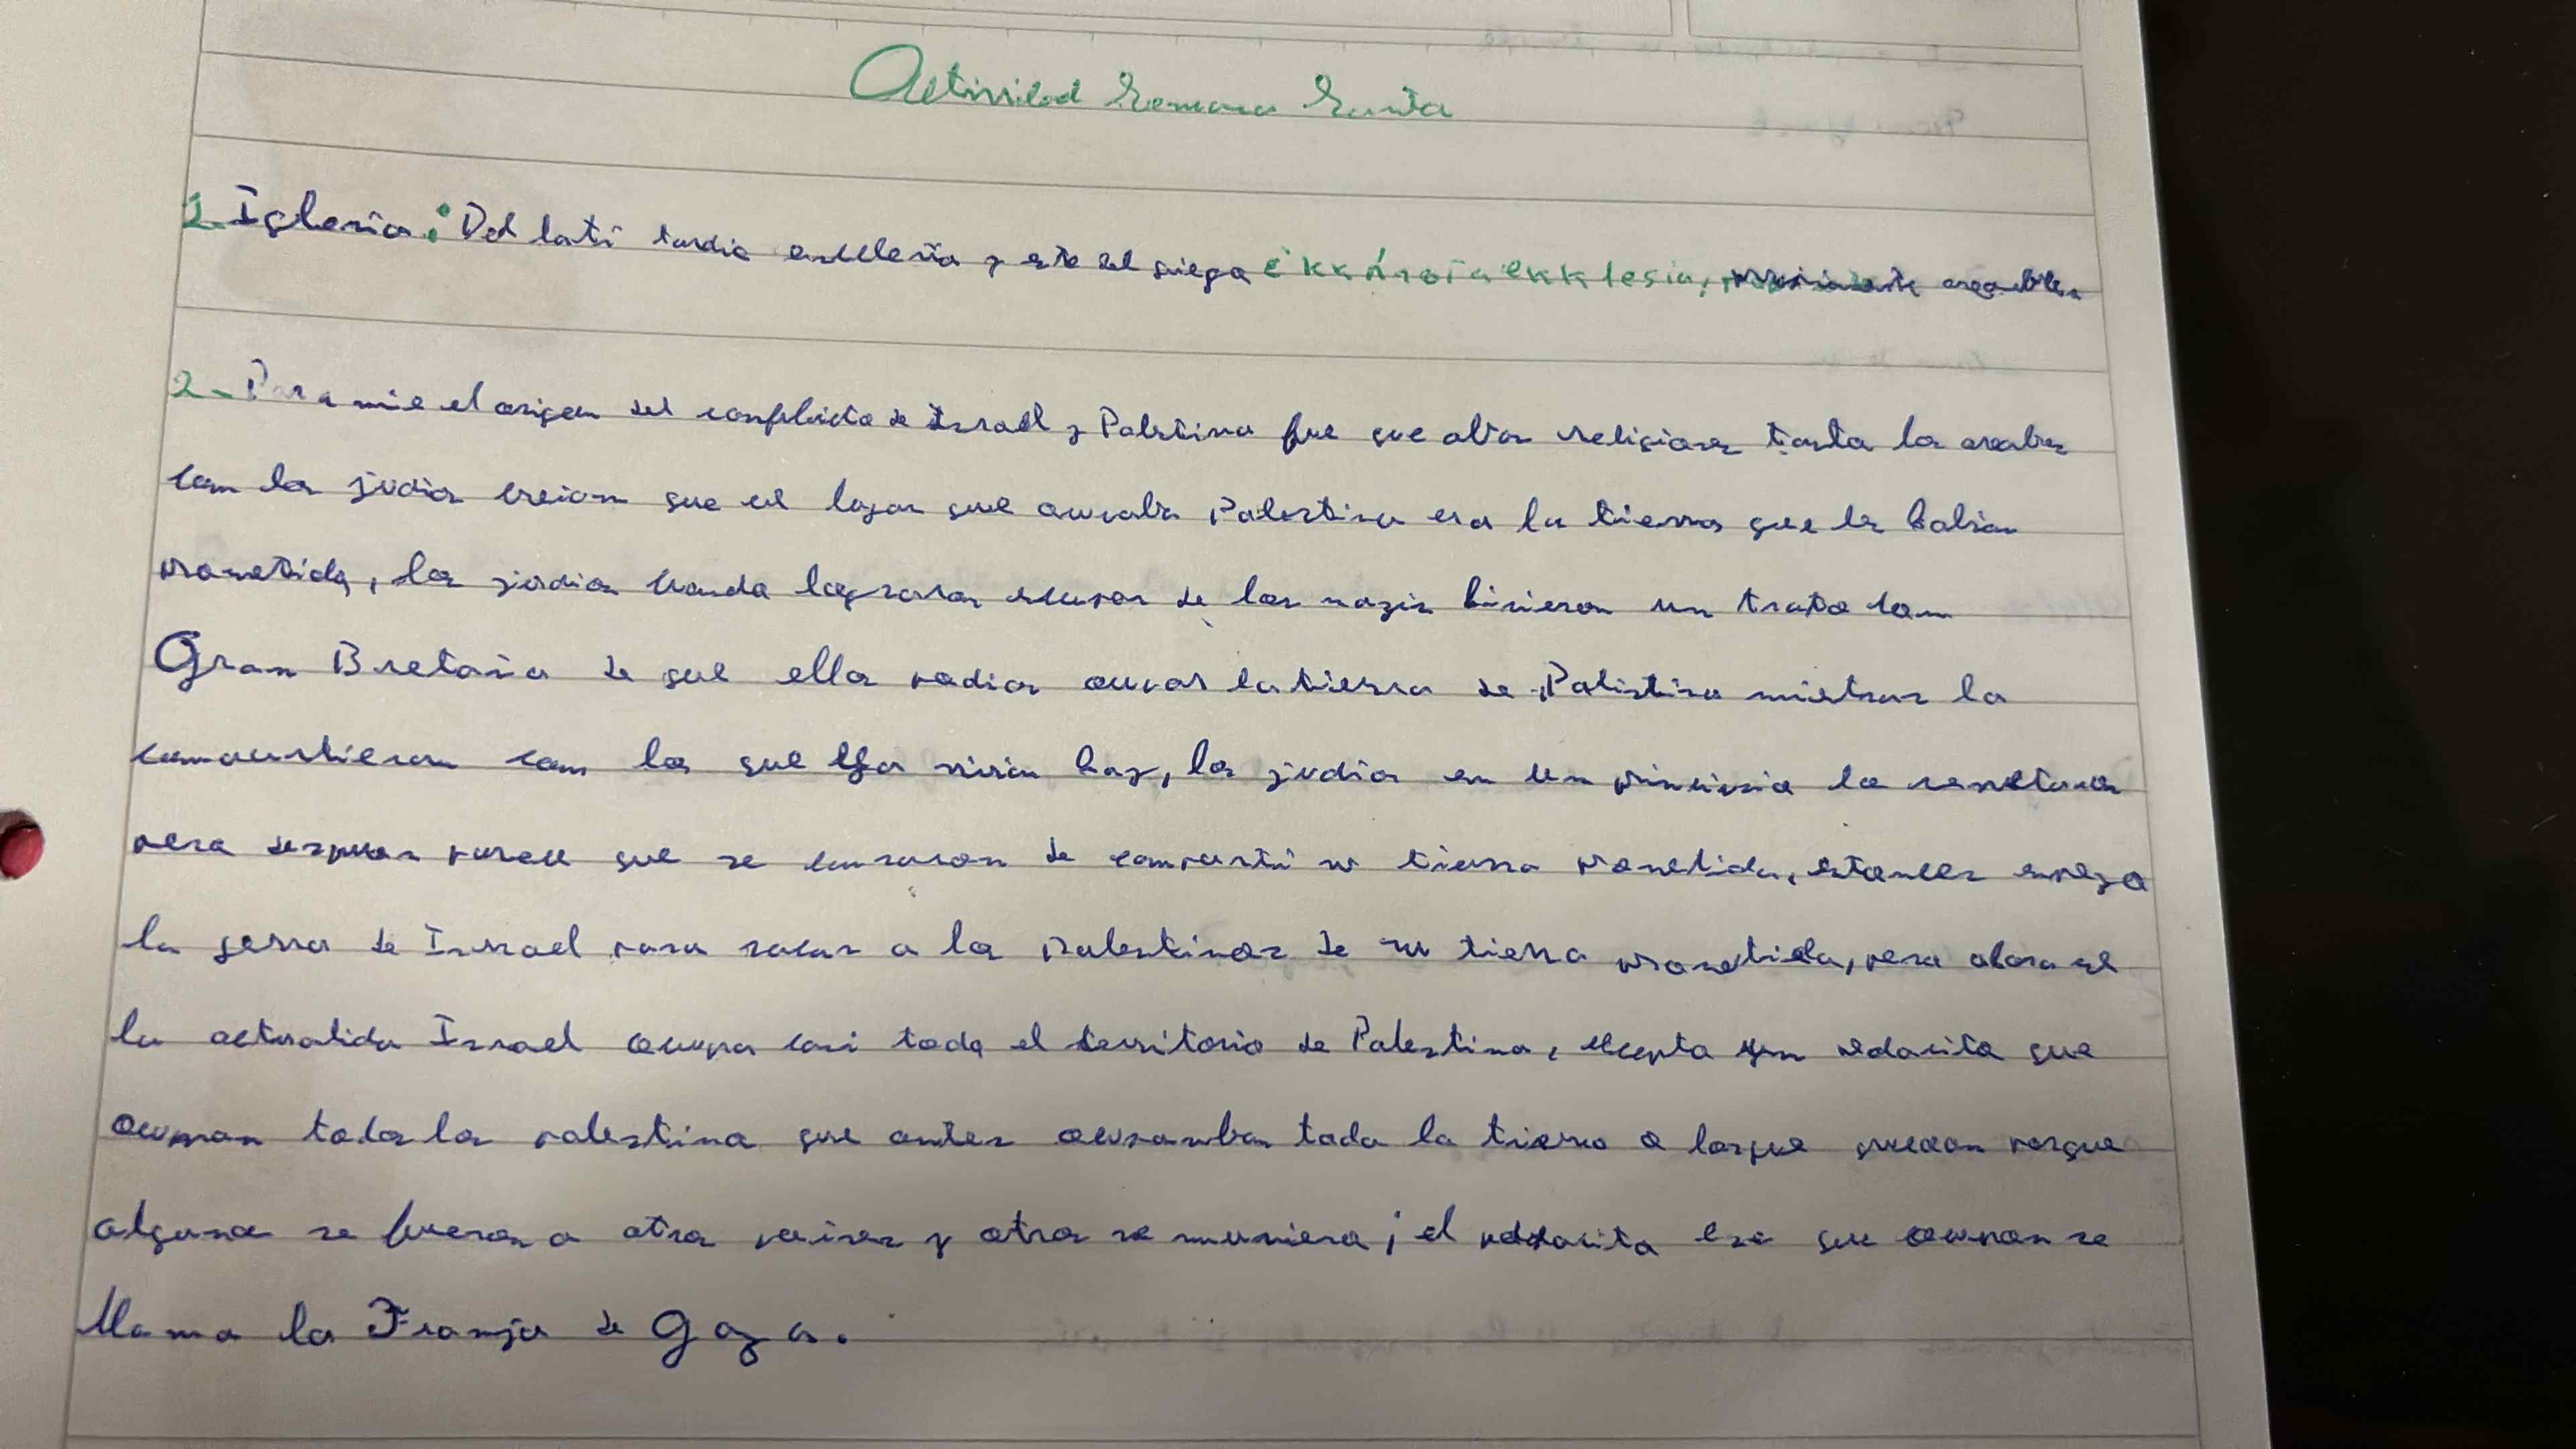 Actividad Semana Santa
1. Iglesia: Del lati tardio ecclesia y este del griego ekklesia, asamblea
2- Para mi el origen del conflicto de Israel y Palestina fue que abia religiones tanto los arabes
com los judios creian que el lugar que ocupaba Palestina era la tierra que les habian
prometido, los judios cuando lograron escapar de los nazis hicieron un trato con
Gran Bretaña de que ellos podian ocupar la tierra de Palistina mietras la
compartieran con los que vivian hay, los judios en un principio lo respetaron
pero despues parece que se cansaron de compartir su tierra prometida, etonces empezo
la gerra de Israel para sacar a los palestinos de su tierra prometida, pero ahora
la actualida Israel ocupa casi todo el territorio de Palestina, excepto un pedacito que
ocupan todos los palestino que antes ocupamban toda la tierra o los que quedan porque
algunos se fueron a otros paises y otros se muriero; el pedacito ese que ocupan se
llama la Franja de Gaza.